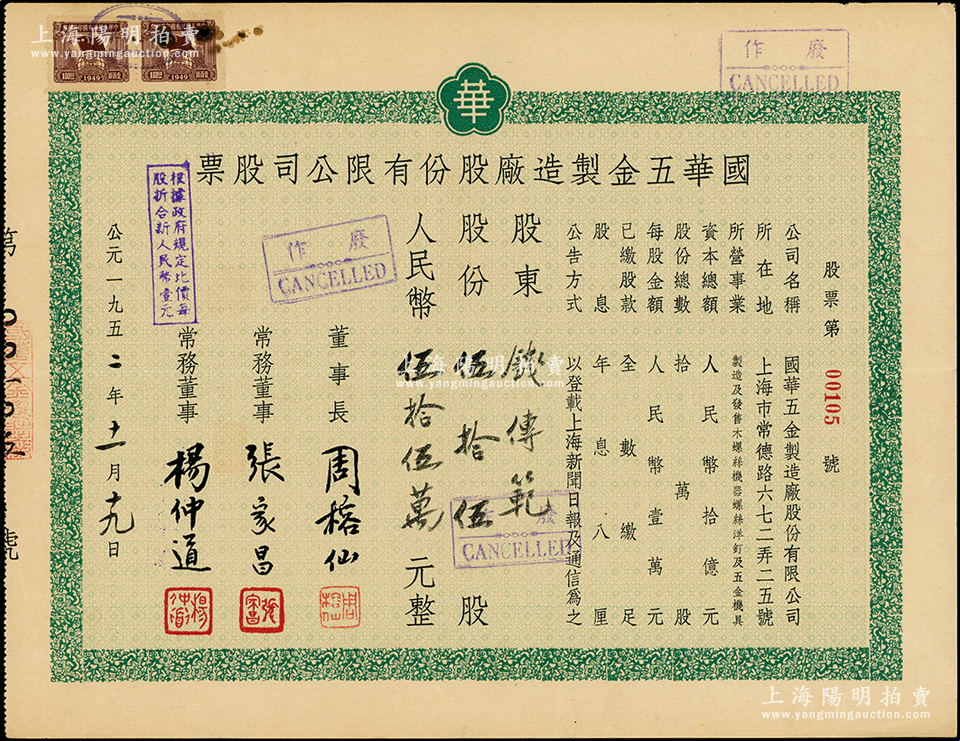 華
國華五金製造廠股份有限公司股票
股票第 00105 號
公司名稱 國華五金製造廠股份有限公司
所在地 上海市常德路六七二弄二五號
所營事業 製造及發售木螺絲機器螺絲洋釘及五金機具
資本總額 人民幣拾億元
股份總數 拾萬股
每股金額 人民幣壹萬元
已繳股款 全數繳足
股息 年息八厘
公告方式 以登載上海新聞日報及通信為之
股東 傳範
股份 伍拾伍股
人民幣 伍拾伍萬元整
董事長 周榕仙
常務董事 張家昌
常務董事 楊仲道
公元一九五二年十一月十九日
根據政府規定比價每
股折合新人民幣壹元
作廢
CANCELLED
作廢
CANCELLED
作廢
CANCELLED
1949
1949
第
號
上海陽明拍賣
www.yangmingauction.com
上海陽明拍賣
www.yangmingauction.com
上海陽明拍賣
www.yangmingauction.com